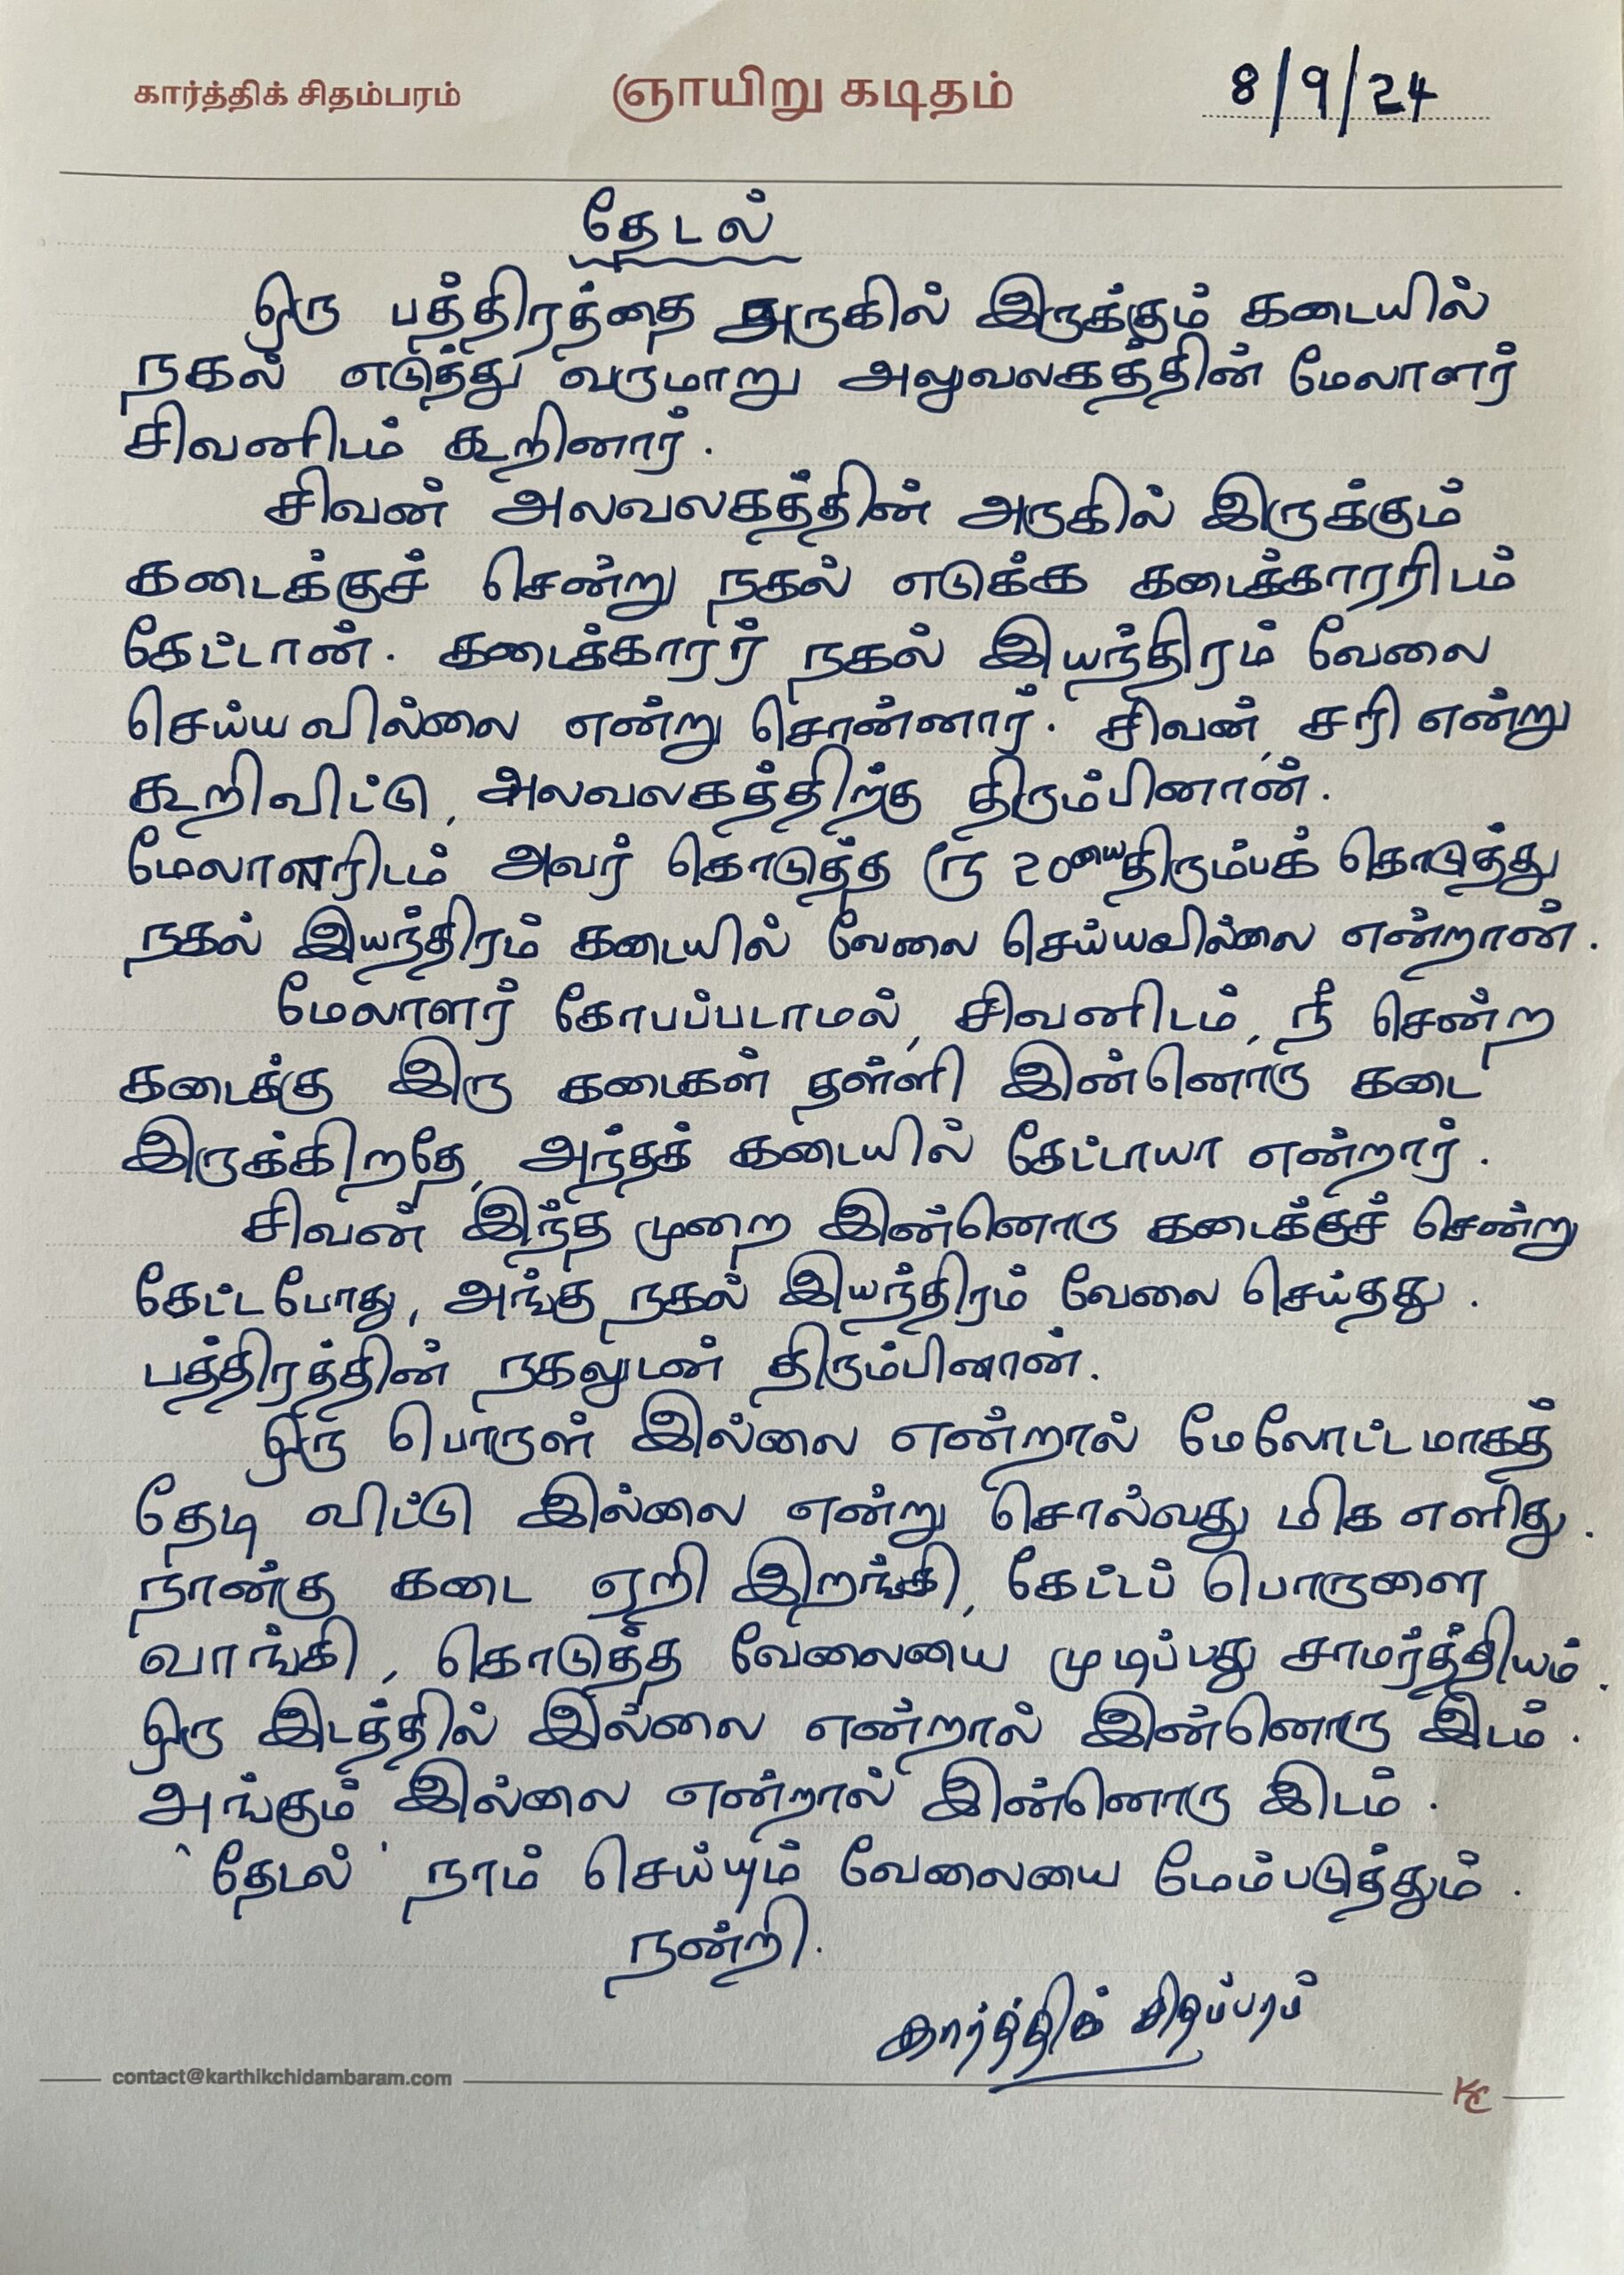 கார்த்திக் சிதம்பரம் ஞாயிறு கடிதம் 8/9/24
தேடல்
ஒரு பத்திரத்தை அருகில் இருக்கும் கடையில்
நகல் எடுத்து வருமாறு அலுவலகத்தின் மேலாளர்
சிவனிடம் கூறினார்.
சிவன் அலவலகத்தின் அருகில் இருக்கும்
கடைக்குச் சென்று நகல் எடுக்க கடைக்காரரிடம்
கேட்டான். கடைக்காரர் நகல் இயந்திரம் வேலை
செய்யவில்லை என்று சொன்னார். சிவன், சரி என்று
கூறிவிட்டு, அலவலகத்திற்கு திரும்பினான்.
மேலாளரிடம் அவர் கொடுத்த ரூ 20யை திரும்பக் கொடுத்து
நகல் இயந்திரம் கடையில் வேலை செய்யவில்லை என்றான்.
மேலாளர் கோபப்படாமல், சிவனிடம், நீ சென்ற
கடைக்கு இரு கடைகள் தள்ளி இன்னொரு கடை
இருக்கிறதே, அந்தக் கடையில் கேட்டாயா என்றார்.
சிவன் இந்த முறை இன்னொரு கடைக்குச் சென்று
கேட்டபோது, அங்கு நகல் இயந்திரம் வேலை செய்தது.
பத்திரத்தின் நகலுடன் திரும்பினான்.
ஒரு பொருள் இல்லை என்றால் மேலோட்டமாகத்
தேடி விட்டு இல்லை என்று சொல்வது மிக எளிது.
நான்கு கடை ஏறி இறங்கி, கேட்டப் பொருளை
வாங்கி, கொடுத்த வேலையை முடிப்பது சாமர்த்தியம்.
ஒரு இடத்தில் இல்லை என்றால் இன்னொரு இடம்.
அங்கும் இல்லை என்றால் இன்னொரு இடம்.
'தேடல்' நாம் செய்யும் வேலையை மேம்படுத்தும்.
நன்றி.
கார்த்திக் சிதம்பரம்
contact@karthikchidambaram.com KC